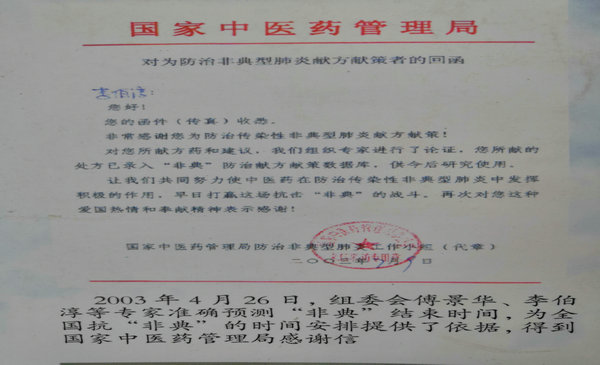 国家中医药管理局
对为防治非典型肺炎献方献策者的回函
李伯淳:
您好!
您的函件(传真)收悉。
非常感谢您为防治传染性非典型肺炎献方献策!
对您所献方药和建议,我们组织专家进行了论证,您所献的
处方已录入“非典”防治献方献策数据库,供今后研究使用。
让我们共同努力使中医药在防治传染性非典型肺炎中发挥
积极的作用,早日打赢这场抗击“非典”的战斗。再次对您这种
爱国热情和奉献精神表示感谢!
国家中医药管理局防治非典型肺炎工作小组(代章)
二〇〇三年 月 日
2003年4月26日,组委会傅景华、李伯
淳等专家准确预测“非典”结束时间,为全
国抗“非典”的时间安排提供了依据,得到
国家中医药管理局感谢信